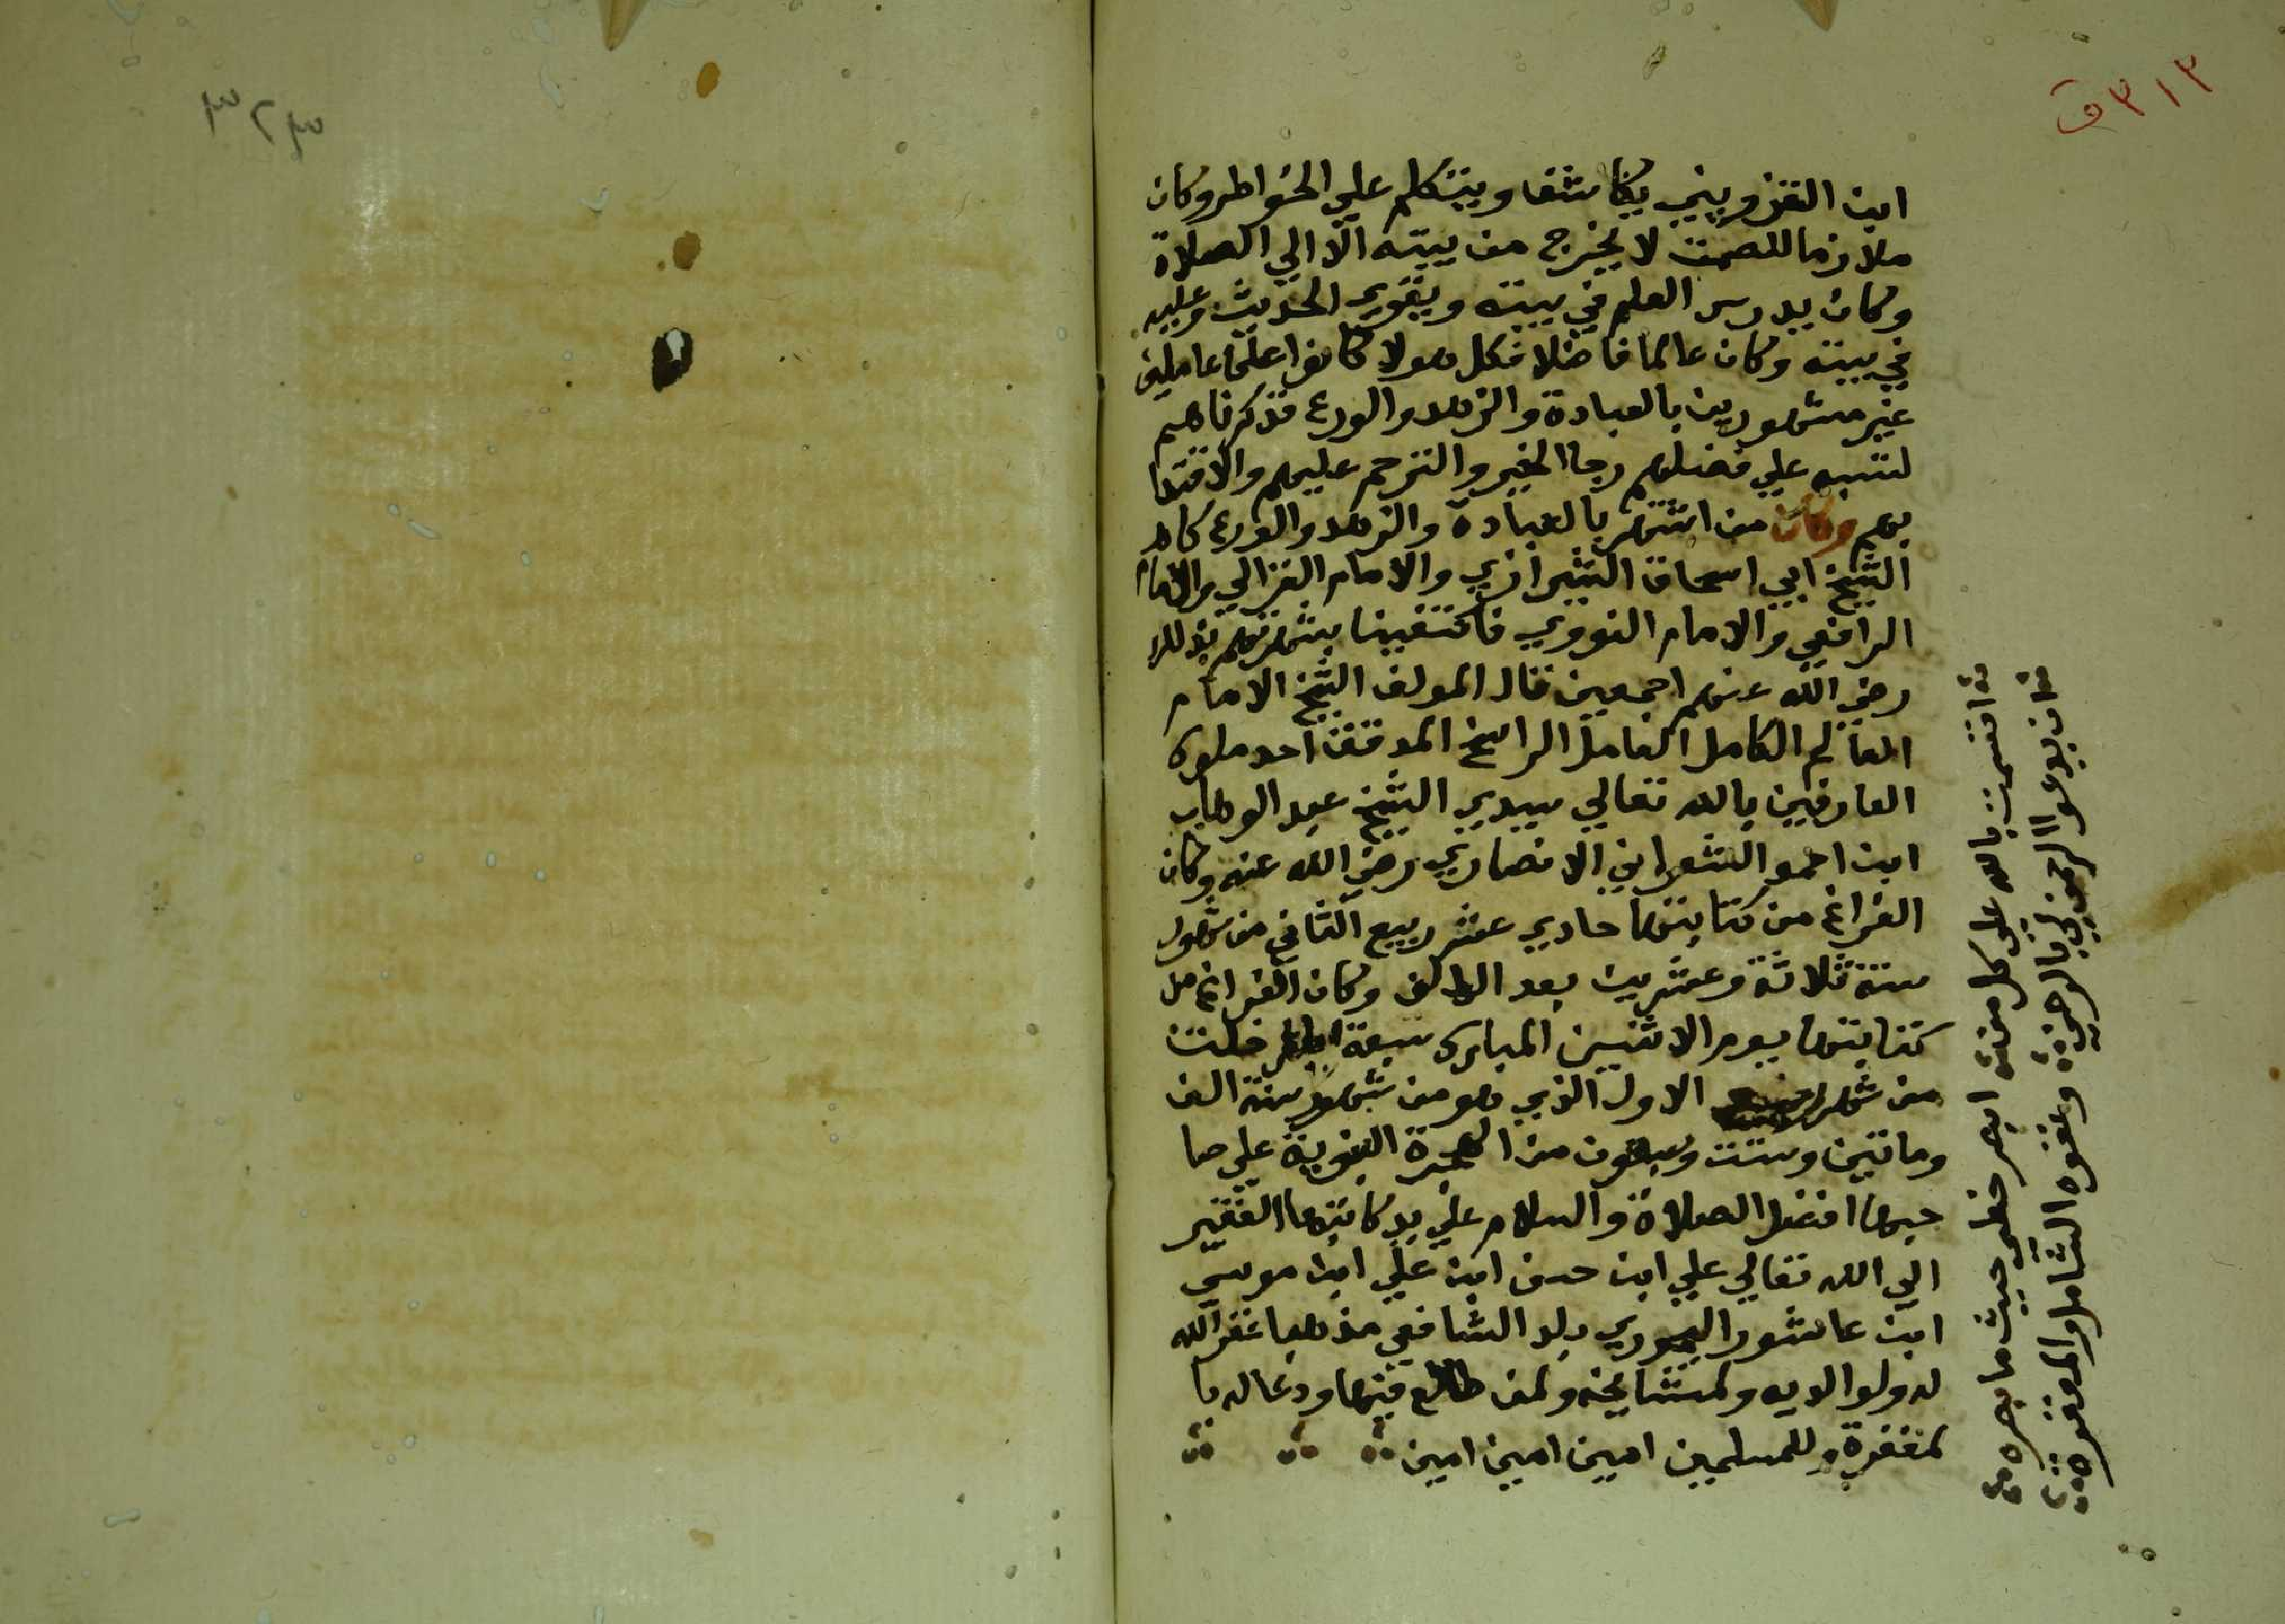 ٣١٣ ق
ابن القزويني يكاشف ويتكلم علي الخواطر وكان
ملازما للصمت لا يخرج من بيته الا الي الصلاة
وكان يدرس العلم في بيته ويقري الحديث وعليه
في بيته وكان عالما فاضلا فكل هولا كانوا علما عاملين
غير مشهورين بالعبادة والزهد والورع فذكرناهم
لننبه علي فضلهم رجا الخير والترحم عليهم والاقتدا
بهم وكان من اشتهر بالعبادة والزهد والورع كالا
الشيخ ابي اسحاق الشيرازي والامام الغزالي والامام
الرافعي والامام النووي فاكتفينا بشهرتهم بذلك
رضي الله عنهم اجمعين قال المولف الشيخ الامام
العالم الكامل العامل الراسخ المدقق احد ملوك
العارفين بالله تعالي سيدي الشيخ عبد الوهاب
ابن احمد الشعراني الانصاري رضي الله عنه وكان
الفراغ من كتابتها حادي عشر ربيع الثاني من شهور
سنة ثلاثة وعشرين بعد الالف وكان الفراغ من
كتابتها يوم الاثنين المبارك سبعة ايام خلت
من شهر الاول الذي هو من شهور سنة الف
وماتين وستت وسبعون من الهجرة النبوية علي صا
حبها افضل الصلاة والسلام علي يد كاتبها الفقير
الي الله تعالي علي ابن حسن ابن علي ابن موسي
ابن عاشور البجوري بلد الشافعي مذهبا غفر الله
له ولوالديه ولمشايخه ولمن طالع فيها ودعا له با
لمغفرة وللمسلمين امين امين امين
اقسمت بالله علي كل من ابصر خطي حيث ما ابصره
ان يدعوا الرحمن لي بالرحمة وعفوه الشامل والمغفرة
٣٢٣